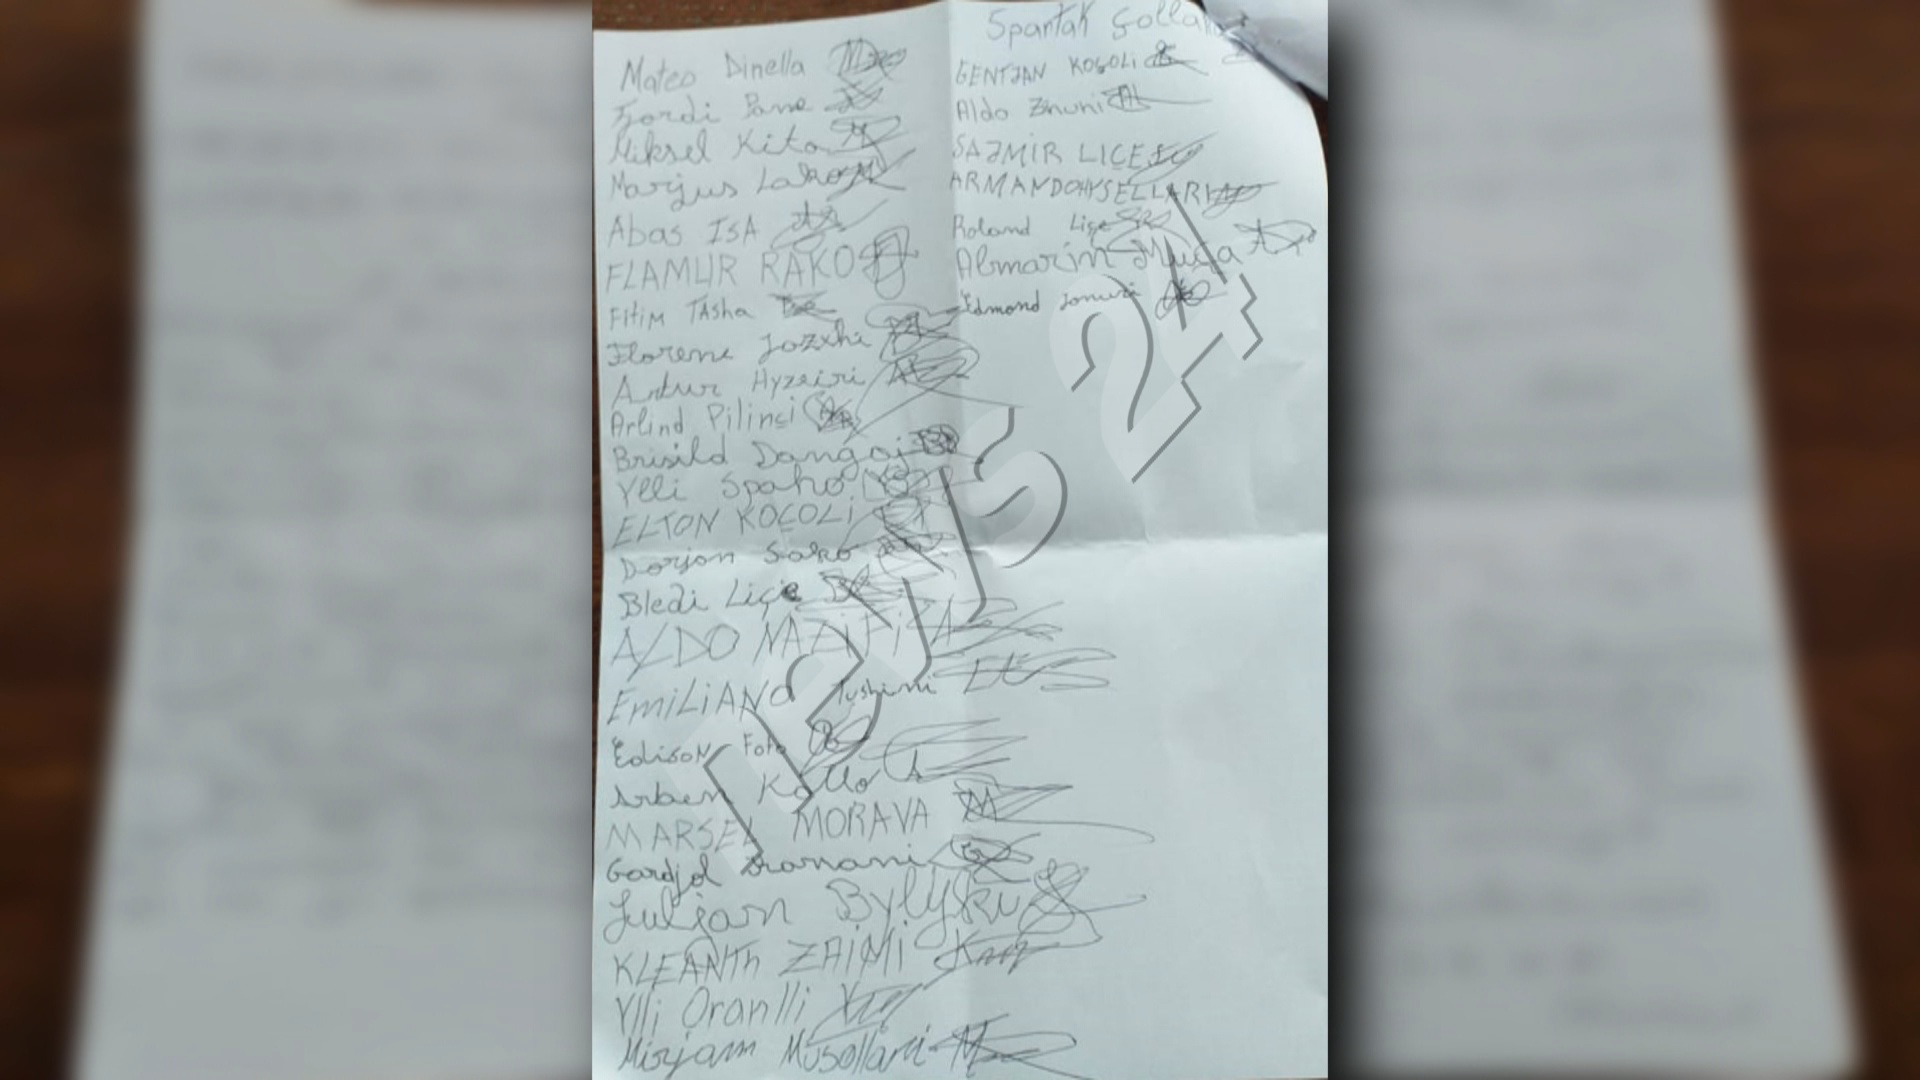 Mateo Dinella
Fjordi Pame
Miksel Kita
Marjus Lako
Abas ISA
FLAMUR RAKO
Fitim TAsha
Florenc
Artur Hyzeiri
Arlind Pilinçi
Brisild Dangaj
Ylli Spaho
ELTON KOÇOLi
Dorjan Sako
Bledi Liçe
ALDO
EMiLiANO
EdisoN Foto
Arben Kallo
MARSEL MORAVA
Gardjol
Juljan Bylyku
KLEANTh ZAiMi
Ylli Oranlli
Mirjam Musollari
Spartak
GENTJAN KOÇOLi
Aldo Zmuni
SAJMIR LIÇE
ARMANDO HYSELLARI
Roland Liçe
Almarin Muça
Edmond
news 24